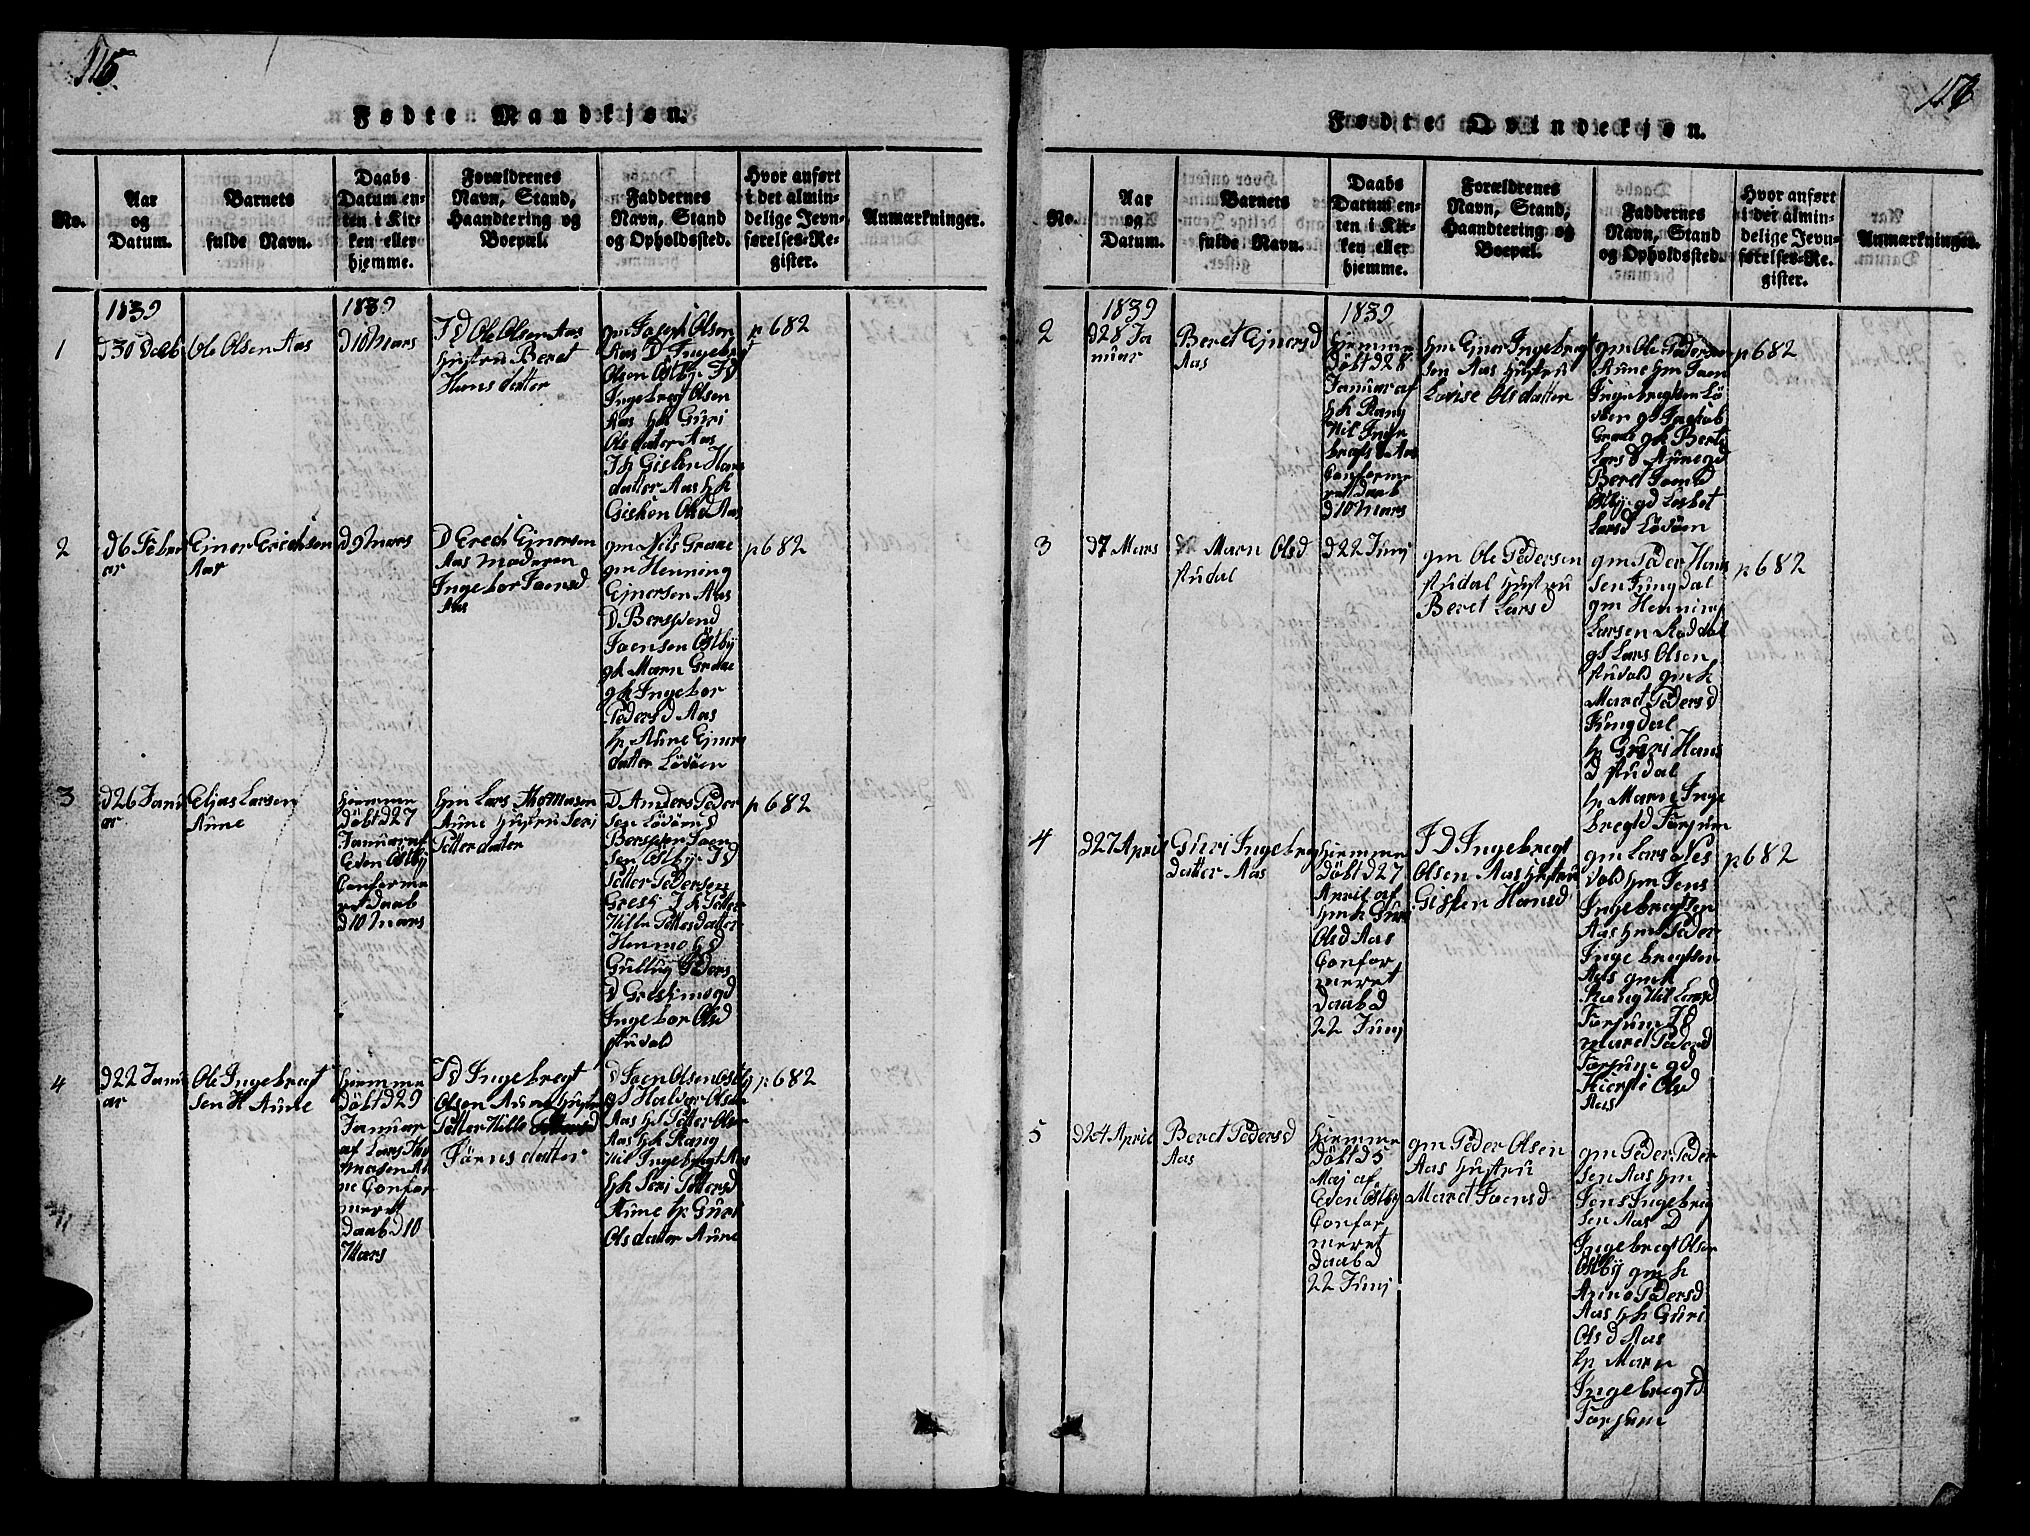 115
Fødte Mandkjøn.
No.
Aar
og
Datum.
Barnets
fulde Navn.
Daabs
Datum en-
ten i Kir-
ken eller
hjemme.
Forældrenes
Navn, Stand,
Haandtering og
Boepæl.
Faddernes
Navn, Stand
og Opholdssted.
Hvor anført
i det almin-
delige Jevn-
førelses-Re-
gister.
Anmærkninger.
1839
1
Ole Olsen Aas
1839
d10 Mars
Ole Olsen Aas
Hustru Beret
Hans datter
gm Joen Olsen
Aas D Ingebregt
Olsen Østby JD
Ingebregt Olsen
Aas hk Guri
Ols datter Aas
Jh Gisken Hans
datter Aas hk
Gisken Olsd Aas
p 682
2
d6 Febru
ar
Ejner Erichsen
Aas
d9 Mars
D Erech Ejnersen
Aas Moderen
Ingebor Joensd
Aas
gm Nils Graae
gm Henning
Ejnersen Aas
D Bersvend
Joensen Østby
gk Marn Graae
gk Ingebor
Pedersd Aas
hp Aune Ejners
datter Lövöen
p 682
3
d26 Janu
ar
Elias Larsen
Aune
hiemme
döbt d27
Januar af
Eden Østby
Confirme
ret daab
d10 Mars
hm Lars Thomasen
Aune Hustru Seri
Petter datter
D Anders Peder
sen Lövöen D
Joen
sen Østby JD
Petter Pedersen
Gresli Jk Petter
Hille Pettersdatter
Henmo
Gulluy Peders
D Gresli
Ingebor Olsd
Stuvold
p 682
4
d22 Janu
ar
Ole Ingebregt
sen H Aune
hiemme
döbt d29
Januar
af Lars Tho
masen Au
ne Confor
meret
daab d10
Mars
JD Ingebregt
Olsen Aune Hustru
Petter Hille
Jörns datter
D Joen Olsen Østby
gS Halvor Olsen
Aas hS Petter Olsen
Aas hk Rang
Hil Ingebregt Aas
hk Seri Pettersd
Aune hp Guri
Olsdatter Aune
p 682
Fødte Qvindekjøn.
No.
Aar
og
Datum.
Barnets
fulde Navn.
Daabs
Datum en-
ten i Kir-
ken eller
hjemme.
Forældrenes
Navn, Stand,
Haandtering og
Boepæl.
Faddernes
Navn, Stand
og Opholdssted.
Hvor anført
i det almin-
delige Jevn-
førelses-Re-
gister.
Anmærkninger.
1839
2
d28 Ja
nuar
Beret Ejnersd
Aas
1839
hiemme
döbt d28
Januar af
hk Rang
Hil Inge
bregtsd Aas
Conforme
ret daab
d10 Mars
hm Ejner Ingebregt
sen Aas Hustru
Lovise Olsdatter
gm Ole Pedersen
Aune hm Joen
Ingebregtsen Lö
gS Jacob
Graae gk Berte
Larsd Aune gd
Beret Joensd
Østby gd Lisbet
Larsd Lövöen
p 682
3
d7 Mars
Marn Olsd
Studal
d22 Junj
gm Ole Pedersen
Studal Hustru
Beret Larsd
gm Peder Han
sen Jungdal
gm Henning
Larsen Rasdal
gS Lars Olsen
Stuvold gmk
Maret Pedersd
Jungdal
hp Guri Hans
d Studal
hp Marn Inge
bregtd Forsum
p 682
4
d27 April
Guri Ingebregt
datter Aas
hiemme
döbt d27
April af
hmk Guri
Olsd Aas
Confor
meret
daab d
22 Junj
JD Ingebregt
Olsen Aas Hustru
Gisken Hansd
gm Lars Nes
vold hm Jens
Ingebregtsen
Aas hm Peder
Ingebregtsen
Aas gmk
Rang Hil Larsd
Forsum JD
Maret Pedersd
Forsum gd
Kiersti Olsd
Aas
p 682
5
d24 April
Beret Pedersd
Aas
hiemme
döbt d5
Maj af
Eden Østby
Confor
meret
daab d
22 Junj
gm Peder Olsen
Aas Hustru
Maret Joensd
gm Peder Peder
sen Aas hm
Jens Ingebrig
sen Aas D
Ingebregt Olsen
Østby gmk
Pedersd
Aas hk Guri
Olsd Aas
hp Marn
Ingebregtd
Forsum